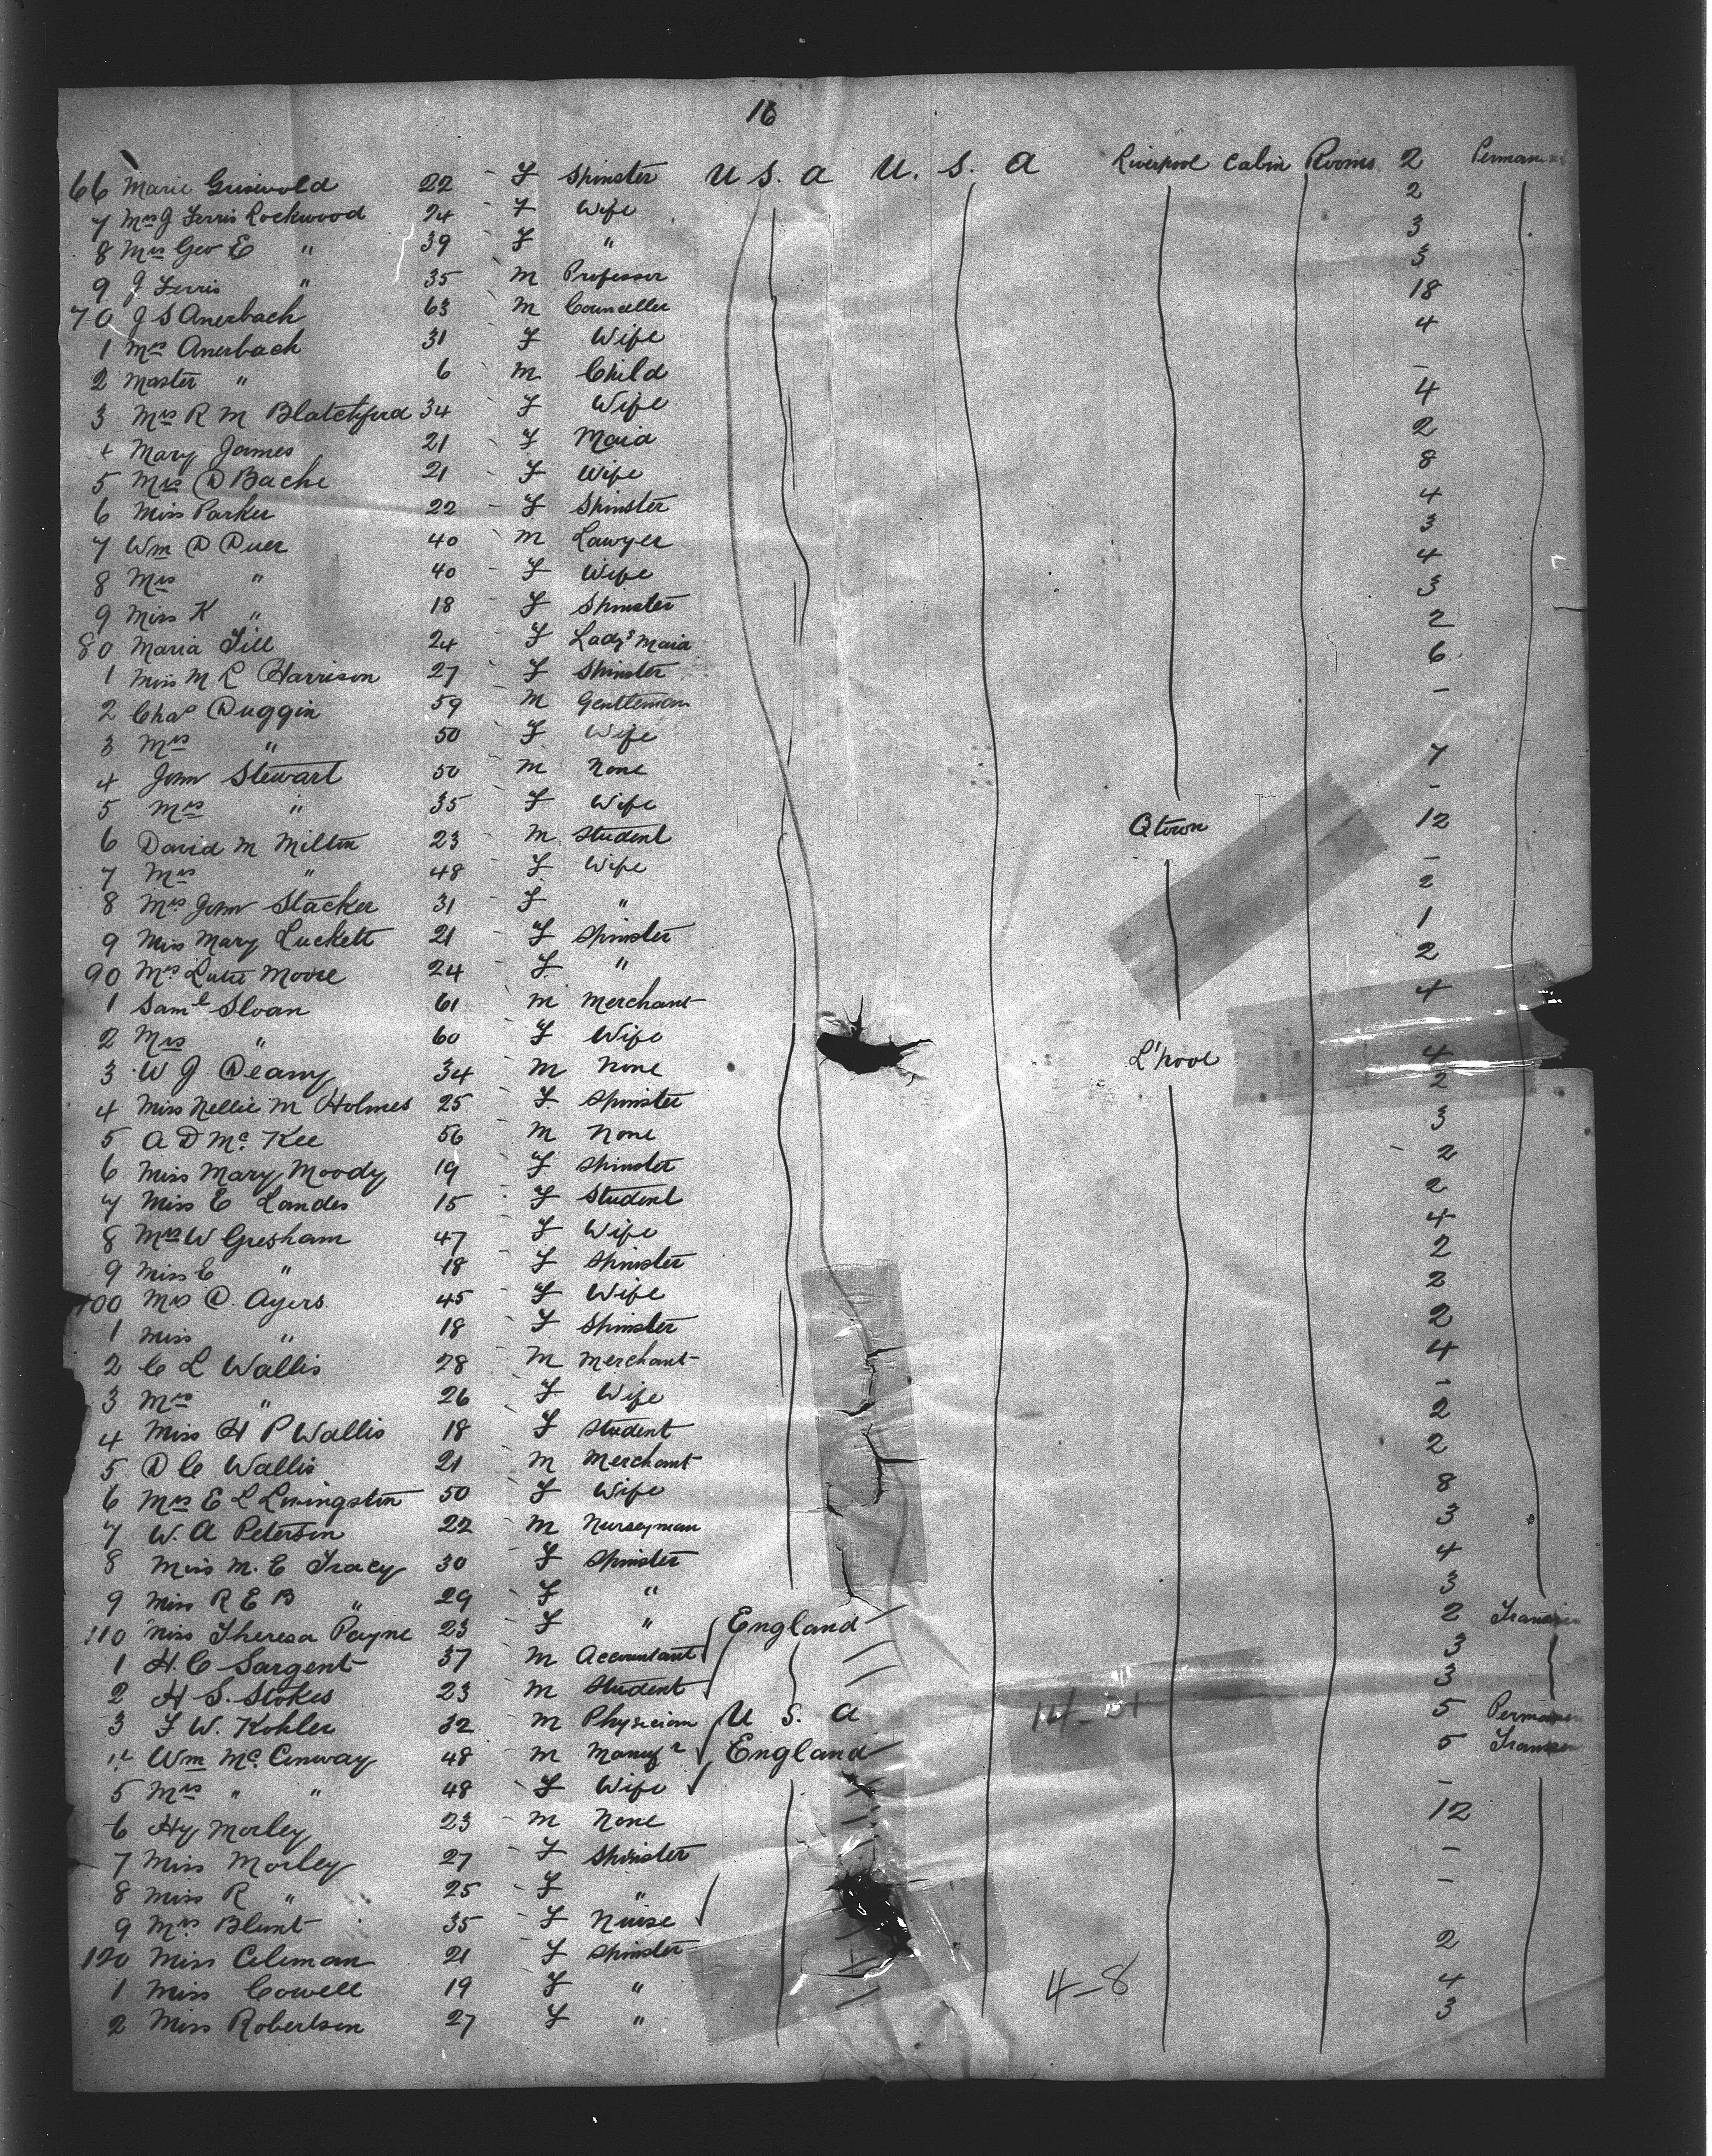 16
66 Marie Griswold 22 F Spinster U S. a U. S. a Liverpool Cabin Rooms 2
7 Mrs J Ferris Lockwood 24 F Wife 2
8 Mrs Geo E " 39 F " 3
9 J Ferris " 35 M Professor 3
70 J S Auerbach 63 M Counceller 18
1 Mrs Auerbach 31 F Wife 4
2 Master " 6 M Child -
3 Mrs R M Blatchford 34 F Wife 4
4 Mary James 21 F Maid 2
5 Mrs D Bache 21 F Wife 8
6 Miss Parker 22 F Spinster 4
7 Wm D Duer 40 M Lawyer 3
8 Mrs " 40 F Wife 4
9 Miss K " 18 F Spinster 3
80 Maria Till 24 F Lady's Maid 2
1 Miss M L Harrison 27 F Spinster 6
2 Chas Duggin 59 M Gentleman -
3 Mrs " 50 F Wife
4 John Stewart 50 M None 7
5 Mrs " 35 F Wife -
6 David M Milton 23 M Student Qtown 12
7 Mrs " 48 F Wife -
8 Mrs John Stacker 31 F " 2
9 Miss Mary Luckett 21 F Spinster 1
90 Mrs Lutie Moore 24 F " 2
1 Saml Sloan 61 M Merchant 4
2 Mrs " 60 F Wife
3 W J Deany 34 M None L'pool 4
4 Miss Nellie M Holmes 25 F Spinster 2
5 A D McKee 56 M None 3
6 Miss Mary Moody 19 F Spinster 2
7 Miss E Landes 15 F Student 2
8 Mrs W Gresham 47 F Wife 4
9 Miss E " 18 F Spinster 2
100 Mrs D. Ayers 45 F Wife 2
1 Miss " 18 F Spinster 2
2 C L Wallis 28 M Merchant 4
3 Mrs " 26 F Wife -
4 Miss H P Wallis 18 F Student 2
5 D C Wallis 21 M Merchant 2
6 Mrs E L Livingston 50 F Wife 8
7 W. A Peterson 22 M Nurseyman 3
8 Miss M. E Tracy 30 F Spinster 4
9 Miss R E B " 29 F " 3
110 Miss Theresa Payne 23 F " England 2
1 H. C Sargent 37 M Accountant 3
2 H S. Stokes 23 M Student 3
3 F W. Kohler 32 M Physician U S. a 14-31 5
4 Wm McConway 48 M Manufr England 5
5 Mrs " " 48 F Wife -
6 Hy Morley 23 M None 12
7 Miss Morley 27 F Spinster -
8 Miss R " 25 F " -
9 Mrs Blunt 35 F Nurse
120 Miss Coleman 21 F Spinster 2
1 Miss Cowell 19 F " 4-8 4
2 Miss Robertson 27 F " 3